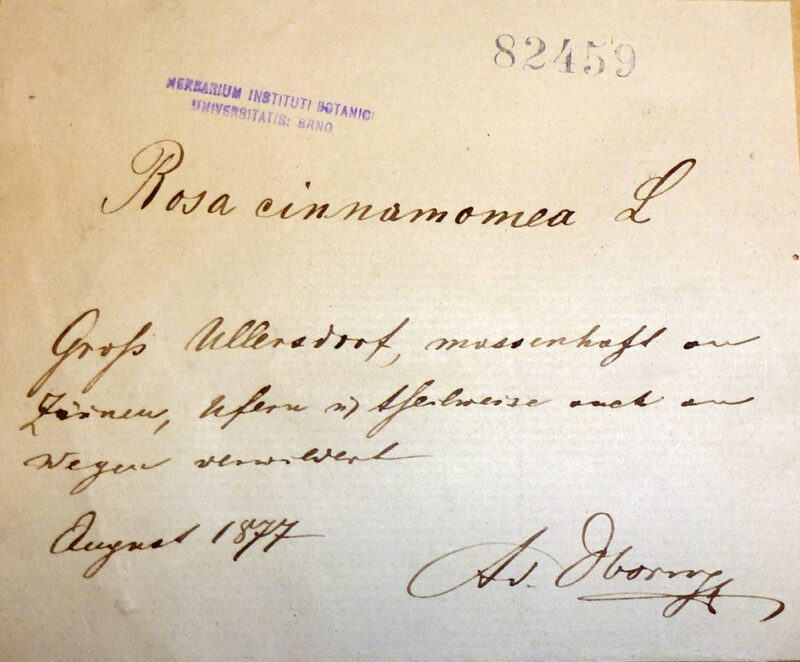 82459
HERBARIUM INSTITUTI BOTANICI
UNIVERSITATIS: BRNO
Rosa cinnamomea L
Groß Ullersdorf, massenhaft an
Zäunen, Ufern u theilweise auch an
Wegen verwildert
August 1877
Ad. Oborny